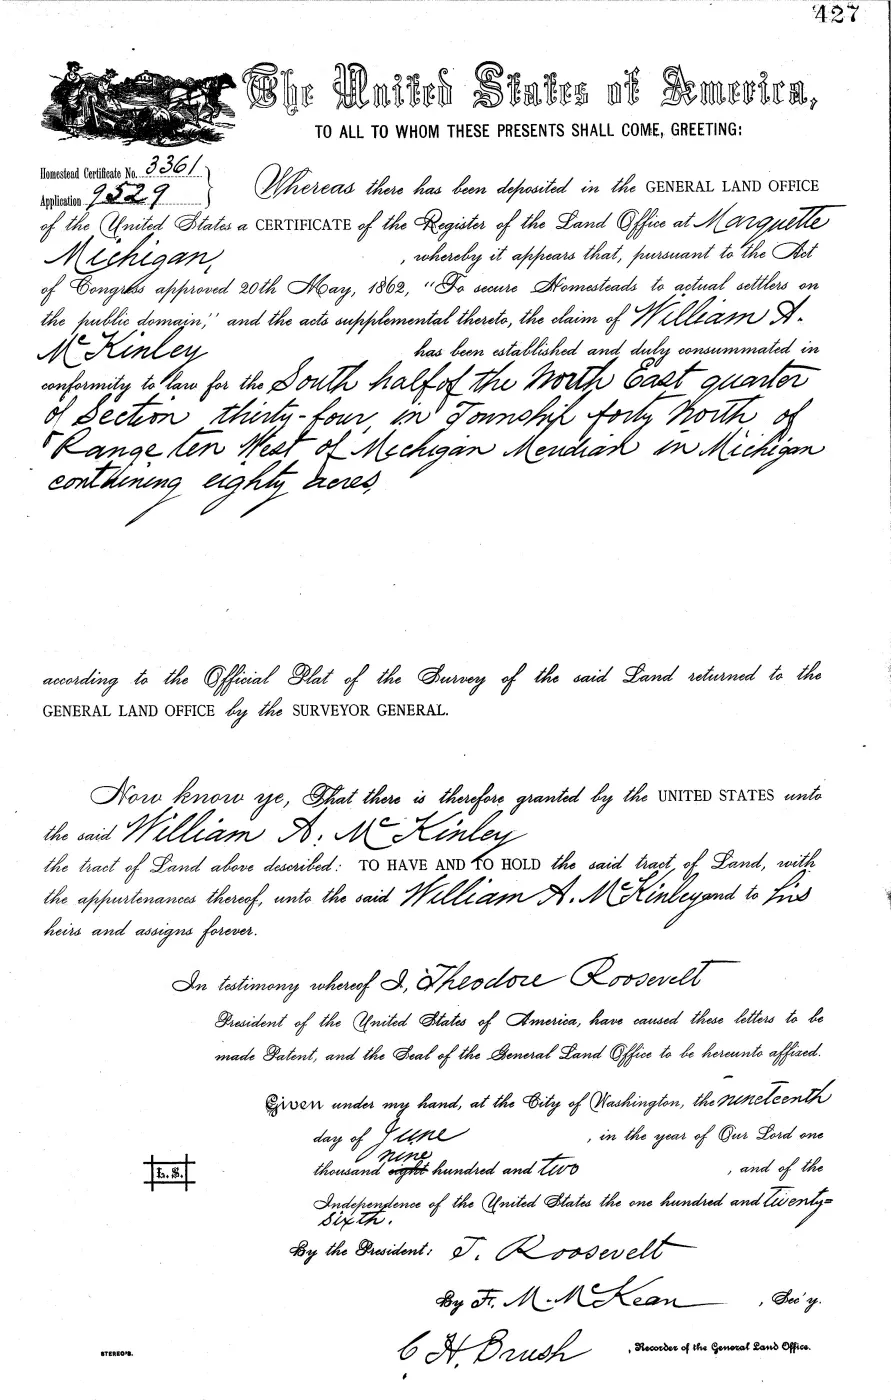 427
The United States of America,
TO ALL TO WHOM THESE PRESENTS SHALL COME, GREETING:
Homestead Certificate No. 3361
Application 9529
Whereas there has been deposited in the GENERAL LAND OFFICE
of the United States a CERTIFICATE of the Register of the Land Office at Marquette
Michigan, , whereby it appears that, pursuant to the Act
of Congress approved 20th May, 1862, "To secure Homesteads to actual settlers on
the public domain," and the acts supplemental thereto, the claim of William A.
McKinley has been established and duly consummated in
conformity to law for the South half of the North East quarter
of Section thirty-four, in Township forty North of
Range ten West of Michigan Meridian in Michigan
containing eighty acres,
according to the Official Plat of the Survey of the said Land returned to the
GENERAL LAND OFFICE by the SURVEYOR GENERAL.
Now know ye, That there is therefore granted by the UNITED STATES unto
the said William A. McKinley
the tract of Land above described: TO HAVE AND TO HOLD the said tract of Land, with
the appurtenances thereof, unto the said William A. McKinley and to his
heirs and assigns forever.
In testimony whereof I, Theodore Roosevelt
President of the United States of America, have caused these letters to be
made Patent, and the Seal of the General Land Office to be hereunto affixed.
Given under my hand, at the City of Washington, the nineteenth
day of June , in the year of Our Lord one
nine
thousand eight hundred and two , and of the
Independence of the United States the one hundred and twenty=
sixth.
L.S.
By the President: T. Roosevelt
By F. M. McKean , Sec'y.
C H. Brush , Recorder of the General Land Office.
STEREO'S.